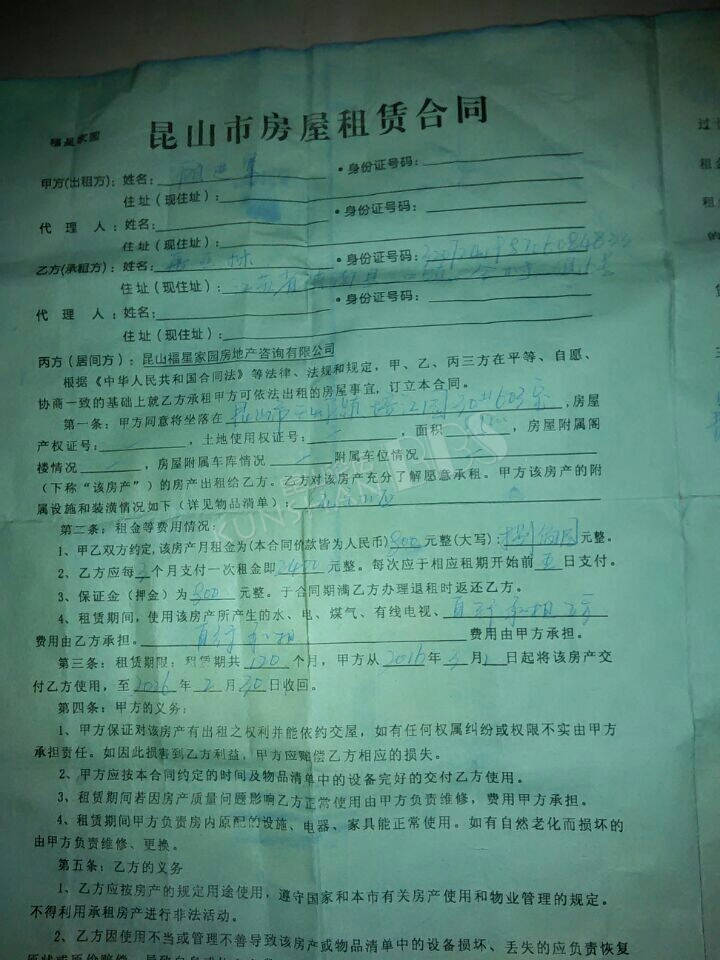 福星家园 昆山市房屋租赁合同
甲方(出租方): 姓名: ・身份证号码:
住址(现住址):
代 理 人: 姓名: ・身份证号码:
住址(现住址):
乙方(承租方): 姓名: ・身份证号码:
住址(现住址): 江苏省
代 理 人: 姓名: ・身份证号码:
住址(现住址):
丙方(居间方): 昆山福星家园房地产咨询有限公司
根据《中华人民共和国合同法》等法律、法规和规定,甲、乙、丙三方在平等、自愿、
协商一致的基础上就乙方承租甲方可依法出租的房屋事宜,订立本合同。
第一条: 甲方同意将坐落在 昆山市 30#603室 ,房屋
产权证号: ,土地使用权证号: ,面积 ,房屋附属阁
楼情况 ,房屋附属车库情况 附属车位情况
(下称“该房产”)的房产出租给乙方。乙方对该房产充分了解愿意承租。甲方该房产的附
属设施和装潢情况如下(详见物品清单):
第二条: 租金等费用情况:
1、甲乙双方约定,该房产月租金为(本合同价款皆为人民币) 800 元整(大写): 捌佰圆 元整。
2、乙方应每 3 个月支付一次租金即 2400 元整。每次应于相应租期开始前 五 日支付。
3、保证金(押金)为 800 元整。于合同期满乙方办理退租时返还乙方。
4、租赁期间,使用该房产所产生的水、电、煤气、有线电视、
费用由乙方承担。 费用由甲方承担。
第三条: 租赁期限: 租赁期共 120 个月,甲方从 2016 年 3 月 1 日起将该房产交
付乙方使用,至 2026 年 2 月 30 日收回。
第四条: 甲方的义务:
1、甲方保证对该房产有出租之权利并能依约交屋,如有任何权属纠纷或权限不实由甲方
承担责任。如因此损害到乙方利益,甲方应赔偿乙方相应的损失。
2、甲方应按本合同约定的时间及物品清单中的设备完好的交付乙方使用。
3、租赁期间若因房产质量问题影响乙方正常使用由甲方负责维修,费用甲方承担。
4、租赁期间甲方负责房内原配的设施、电器、家具能正常使用。如有自然老化而损坏的
由甲方负责维修、更换。
第五条: 乙方的义务
1、乙方应按房产的规定用途使用,遵守国家和本市有关房产使用和物业管理的规定。
不得利用承租房产进行非法活动。
2、乙方因使用不当或管理不善导致该房产或物品清单中的设备损坏、丢失的应负责恢复